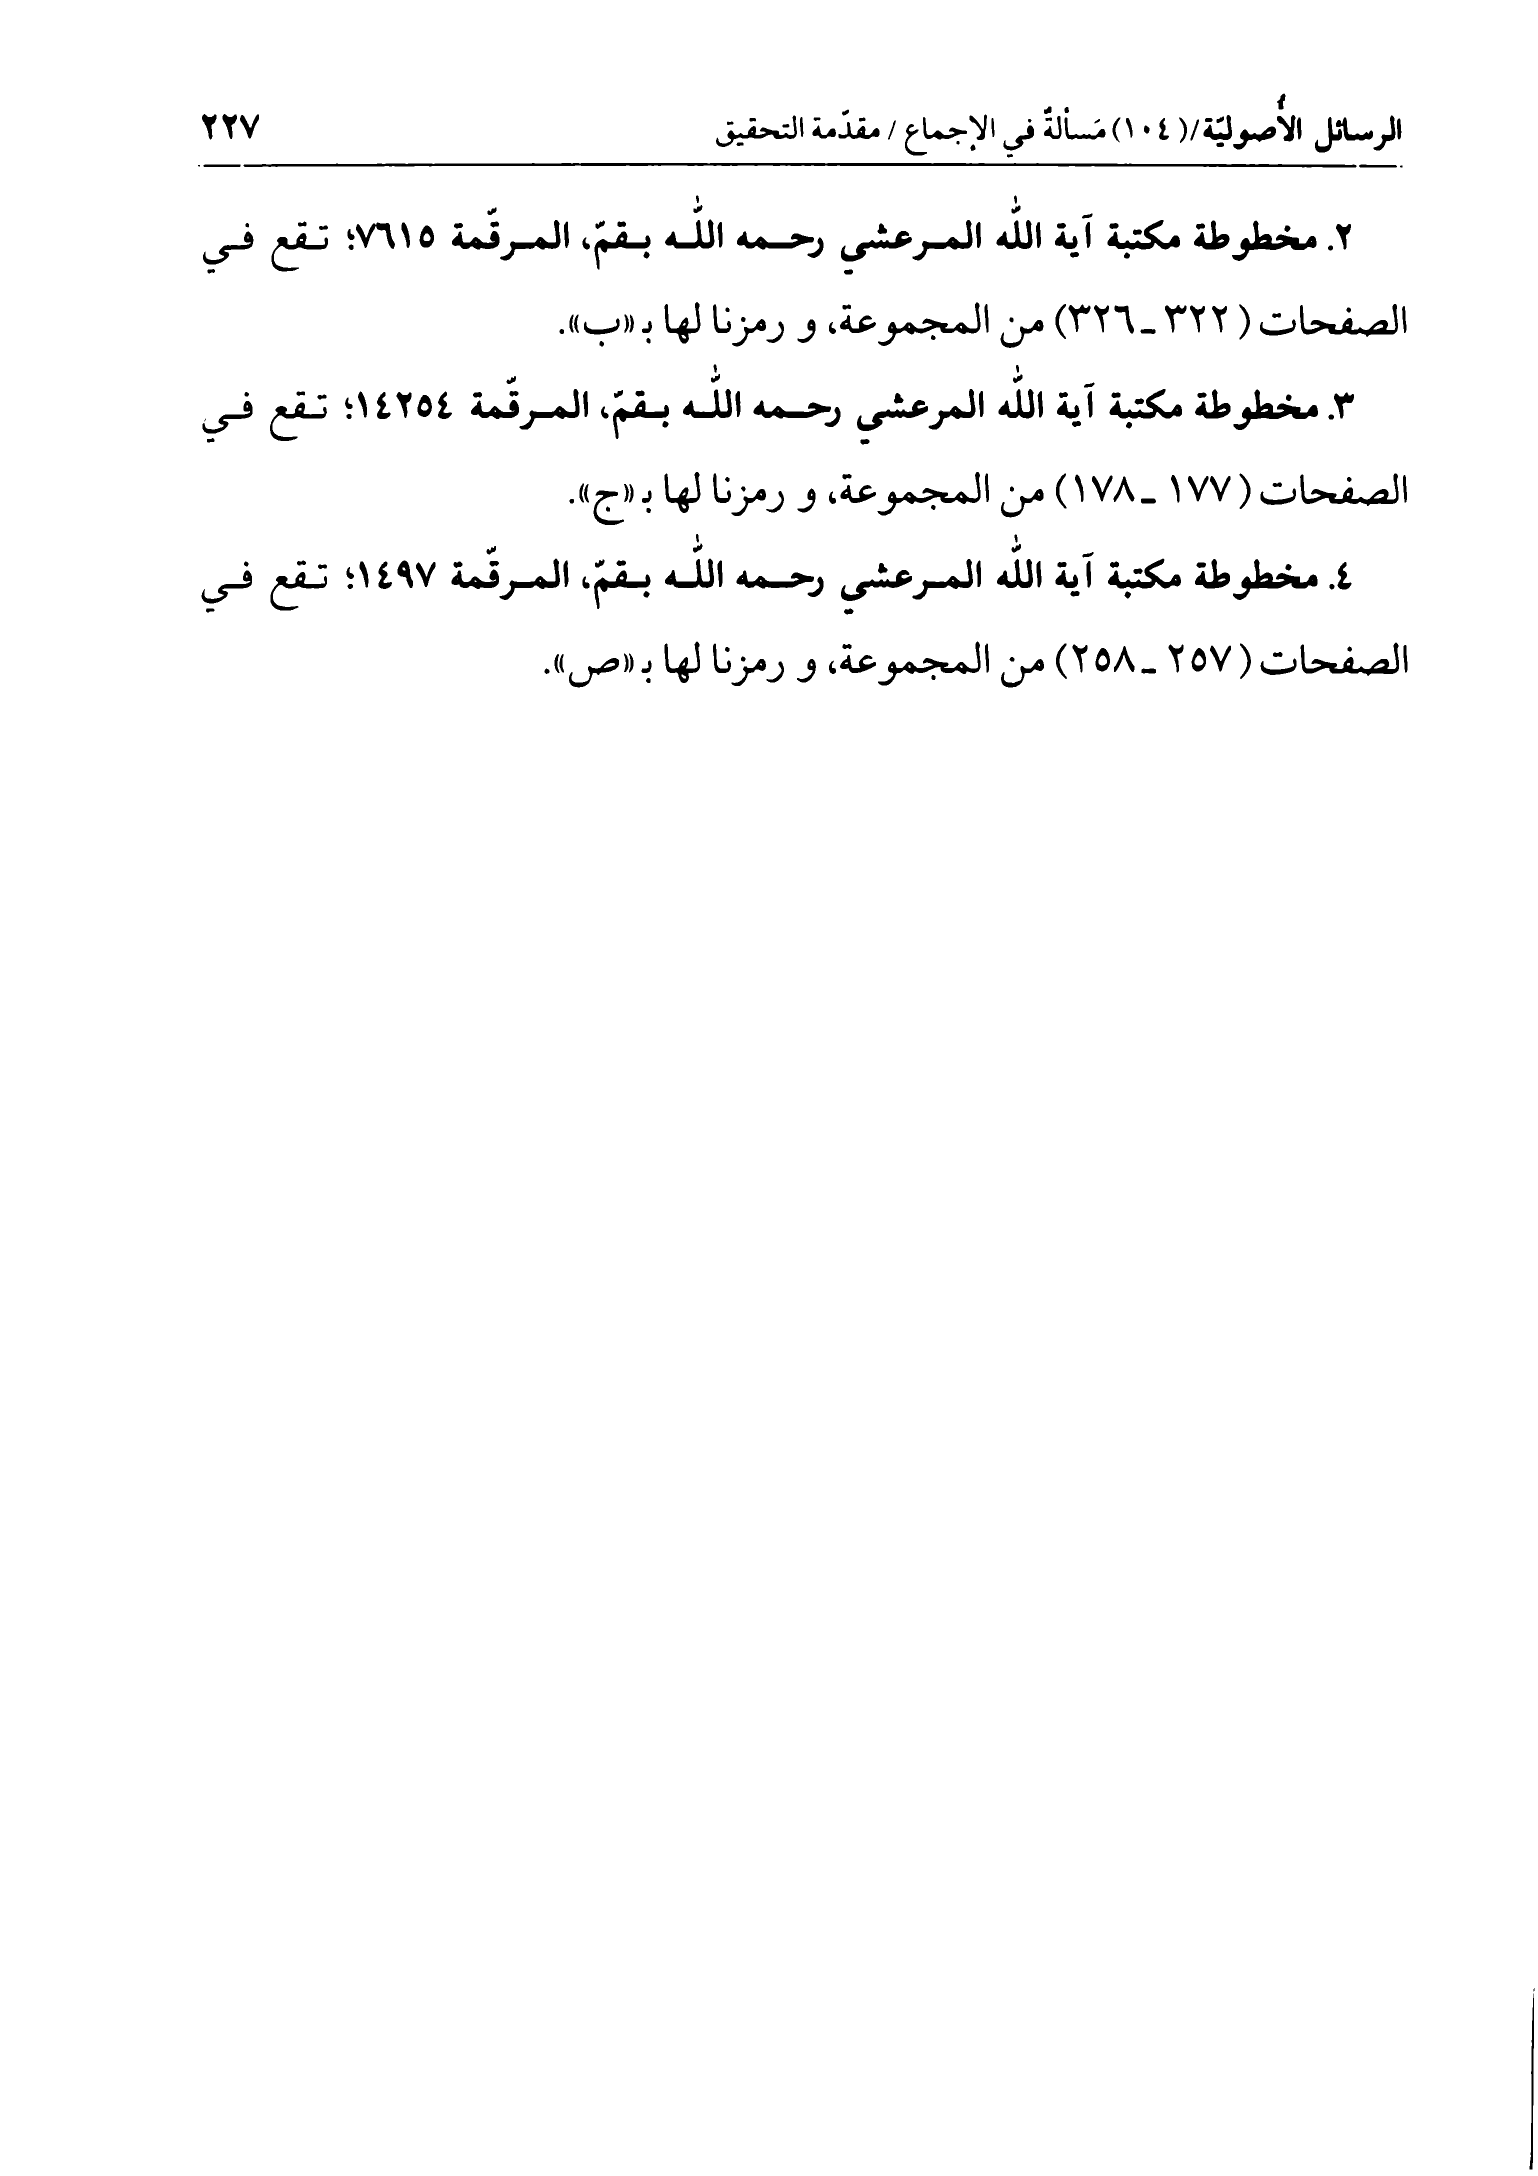 الرسائل الأُصوليّة/(١٠٤) مَسألةٌ في الإجماع / مقدّمة التحقيق ٢٢٧
٢. مخطوطة مكتبة آية اللّٰه المـرعشي رحـمه اللّٰـه بـقمّ، المـرقّمة ٧٦١٥؛ تـقع فـي
الصفحات (٣٢٢ ـ ٣٢٦) من المجموعة، و رمزنا لها بـ «ب».
٣. مخطوطة مكتبة آية اللّٰه المرعشي رحـمه اللّٰـه بـقمّ، المـرقّمة ١٤٢٥٤؛ تـقع فـي
الصفحات (١٧٧ ـ ١٧٨) من المجموعة، و رمزنا لها بـ «ج».
٤. مخطوطة مكتبة آية اللّٰه المـرعشي رحـمه اللّٰـه بـقمّ، المـرقّمة ١٤٩٧؛ تـقع فـي
الصفحات (٢٥٧ ـ ٢٥٨) من المجموعة، و رمزنا لها بـ «ص».